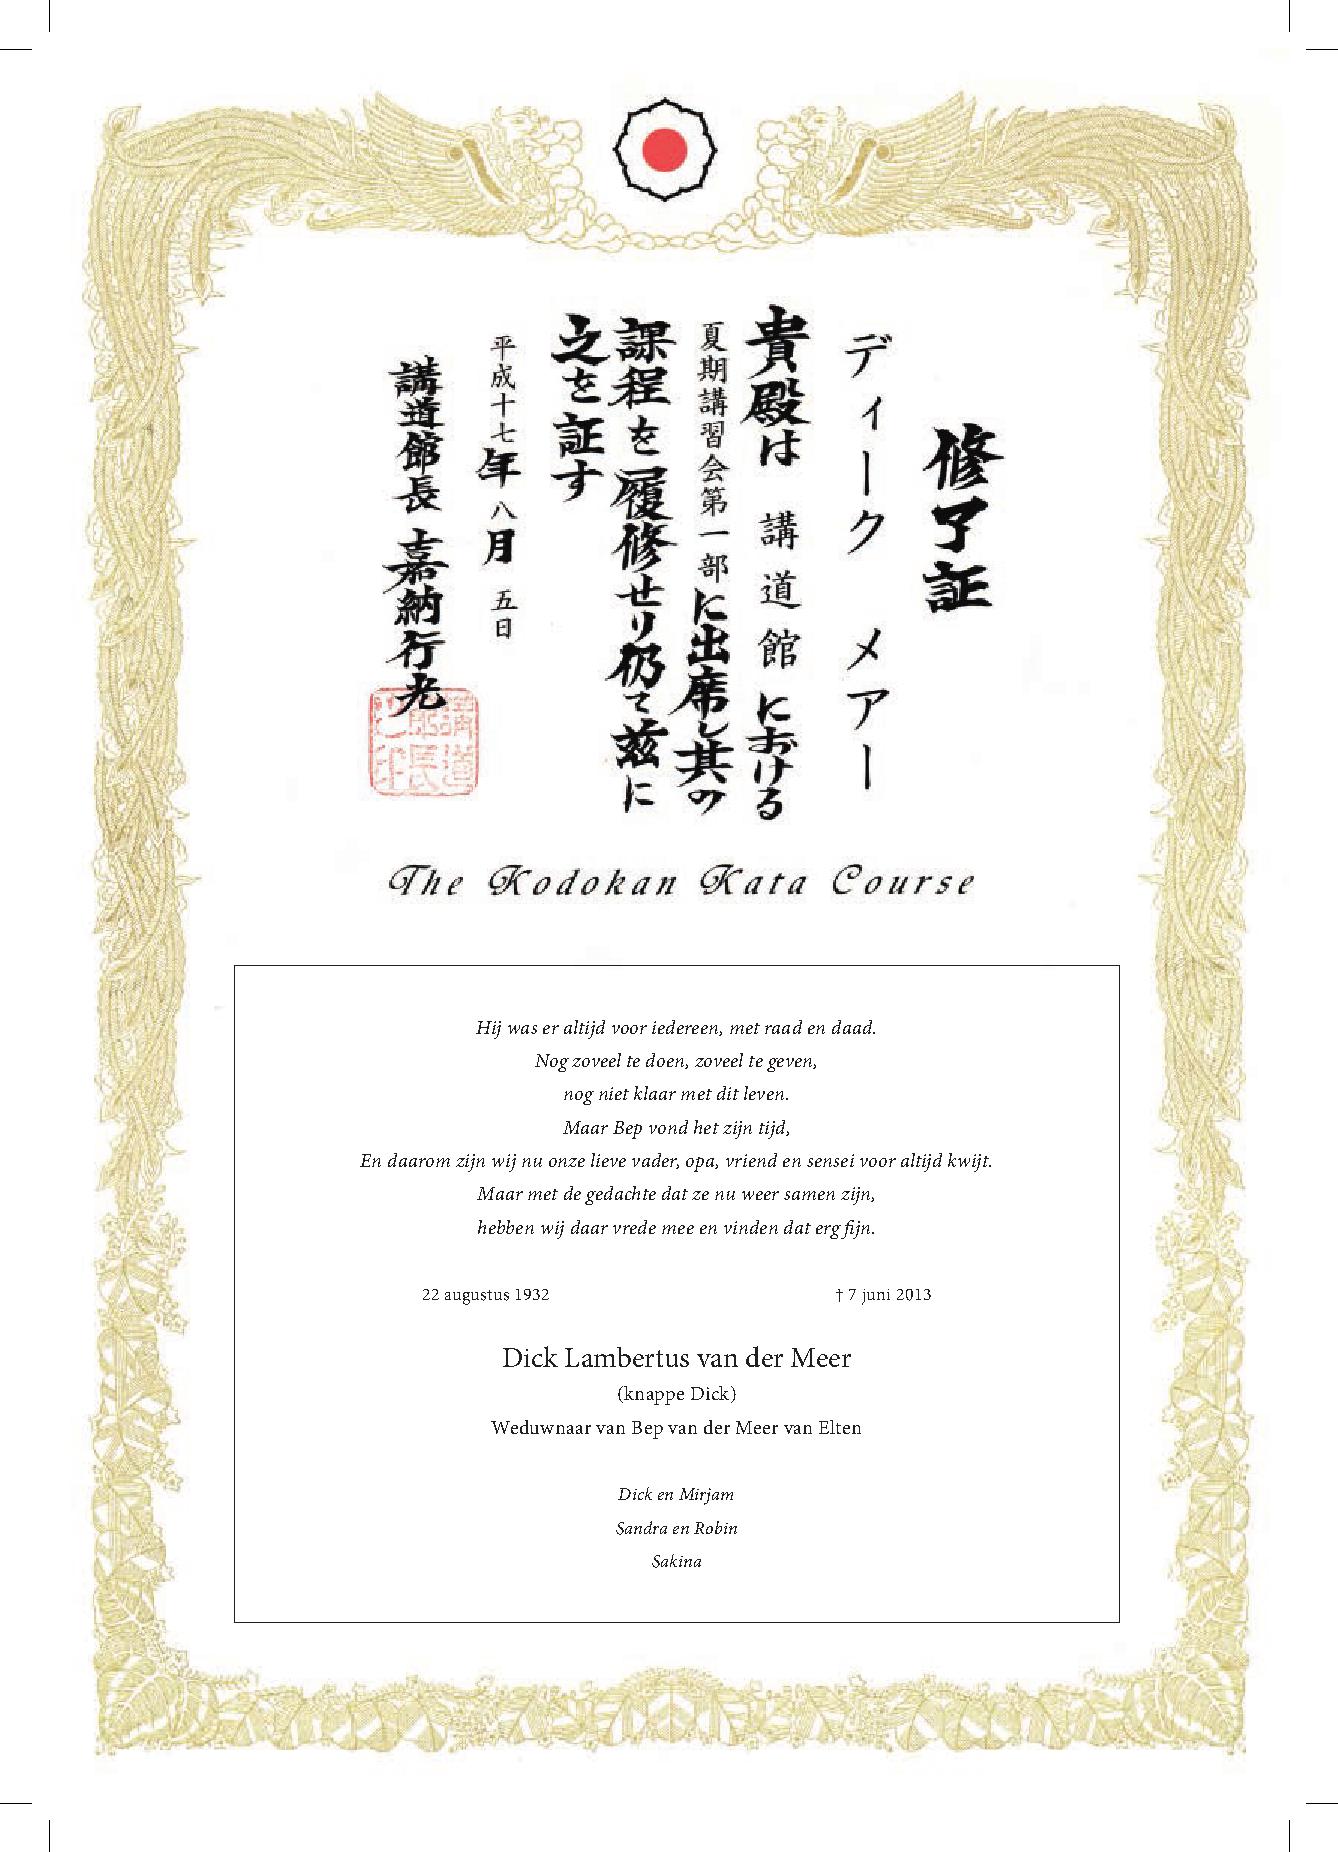 修了証
ディーク メアー
貴殿は 講道館における
夏期講習会第一部に出席し其の
課程を履修せり仍て茲に
之を証す
平成十七年八月五日
講道館長 嘉納行光
The Kodokan Kata Course
Hij was er altijd voor iedereen, met raad en daad.
Nog zoveel te doen, zoveel te geven,
nog niet klaar met dit leven.
Maar Bep vond het zijn tijd,
En daarom zijn wij nu onze lieve vader, opa, vriend en sensei voor altijd kwijt.
Maar met de gedachte dat ze nu weer samen zijn,
hebben wij daar vrede mee en vinden dat erg fijn.
22 augustus 1932 † 7 juni 2013
Dick Lambertus van der Meer
(knappe Dick)
Weduwnaar van Bep van der Meer van Elten
Dick en Mirjam
Sandra en Robin
Sakina